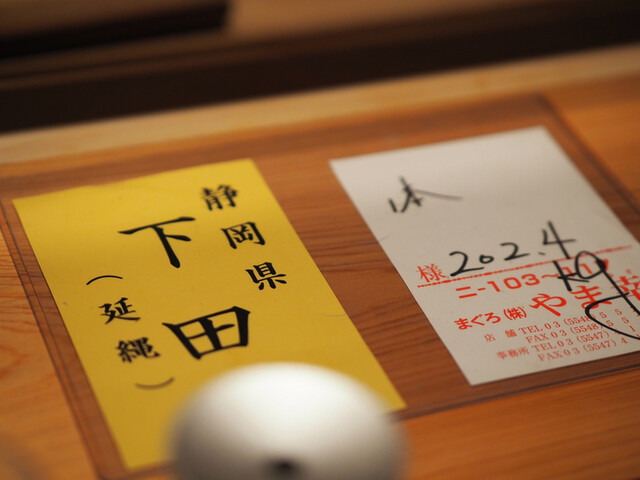 静岡県
下田
(延縄)
202.4
様
ニ-103~
まぐろ(株)やま
店舗 TEL 03 (5548)
FAX 03 (5548)
事務所 TEL 03 (5547)
FAX 03 (5547) 4